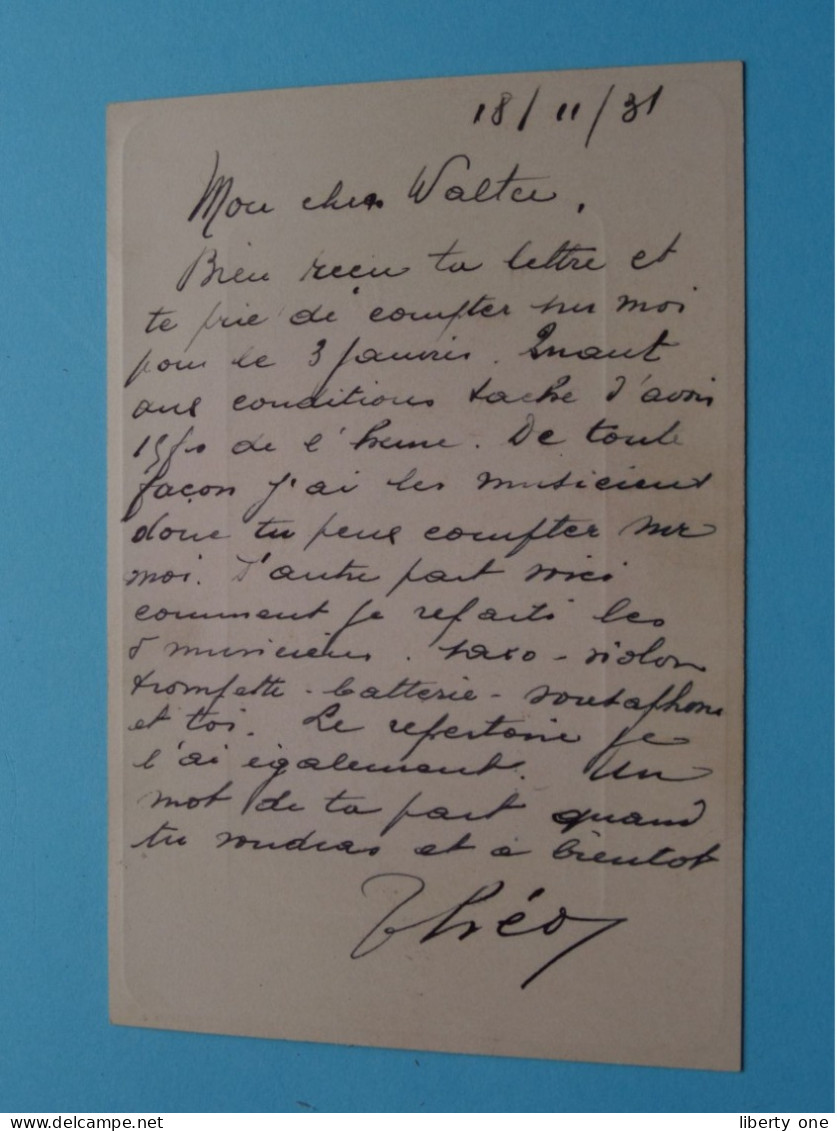 18/11/31
Mon cher Walter,
Bien reçu ta lettre et
te prie de compter sur moi
pour le 3 Janvier. Quant
aux conditions tache d'avoir
de l'heure. De toute
façon j'ai les musiciens
donc tu peux compter sur
moi. D'autre part voici
comment je repartis les
musiciens. saxo - violon
trompette - batterie - sousaphone
et toi. Le repertoire je
l'ai également. Un
mot de ta part quand
tu voudras et a bientot
Théo
Delcampe.net
liberty one